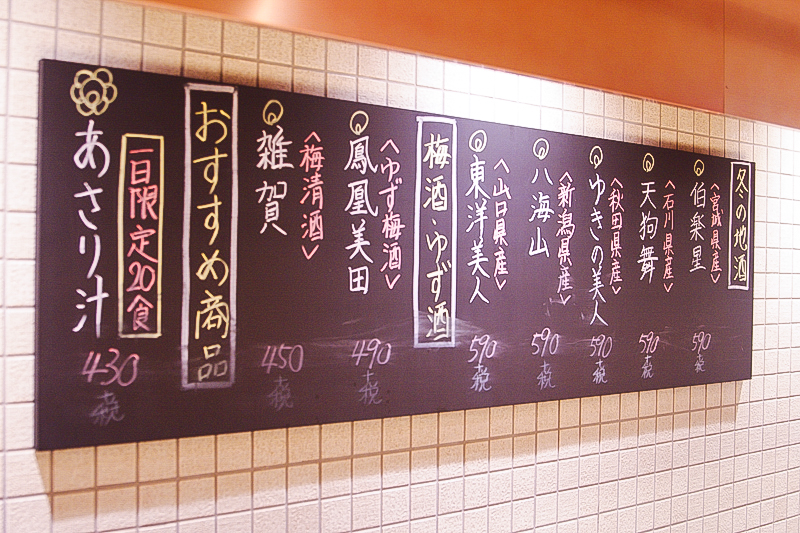 冬の地酒
〈宮城県産〉
伯楽星
590
+税
〈石川県産〉
天狗舞
590
+税
〈秋田県産〉
ゆきの美人
590
+税
〈新潟県産〉
八海山
590
+税
〈山口県産〉
東洋美人
590
+税
梅酒 ゆず酒
〈ゆず梅酒〉
鳳凰美田
490
+税
〈梅清酒〉
雑賀
450
+税
おすすめ商品
一日限定20食
あさり汁
430
+税